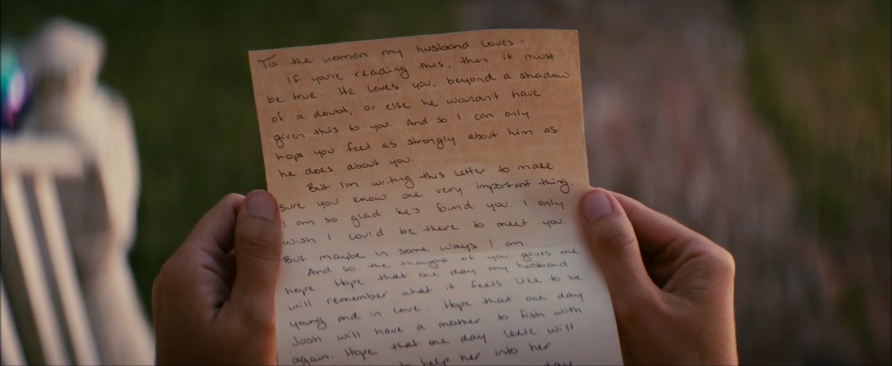 To the woman my husband loves -
If you're reading this, then it must
be true. He loves you, beyond a shadow
of a doubt, or else he wouldn't have
given this to you. And so I can only
hope you feel as strongly about him as
he does about you.
But I'm writing this letter to make
sure you know one very important thing.
I am so glad he's found you. I only
wish I could be there to meet you.
But maybe in some ways I am.
And so the thought of you gives me
hope. Hope that one day my husband
will remember what it feels like to be
young and in love. Hope that one day
Josh will have a mother to fish with
again. Hope that one day Lexie will
to help her into her
day